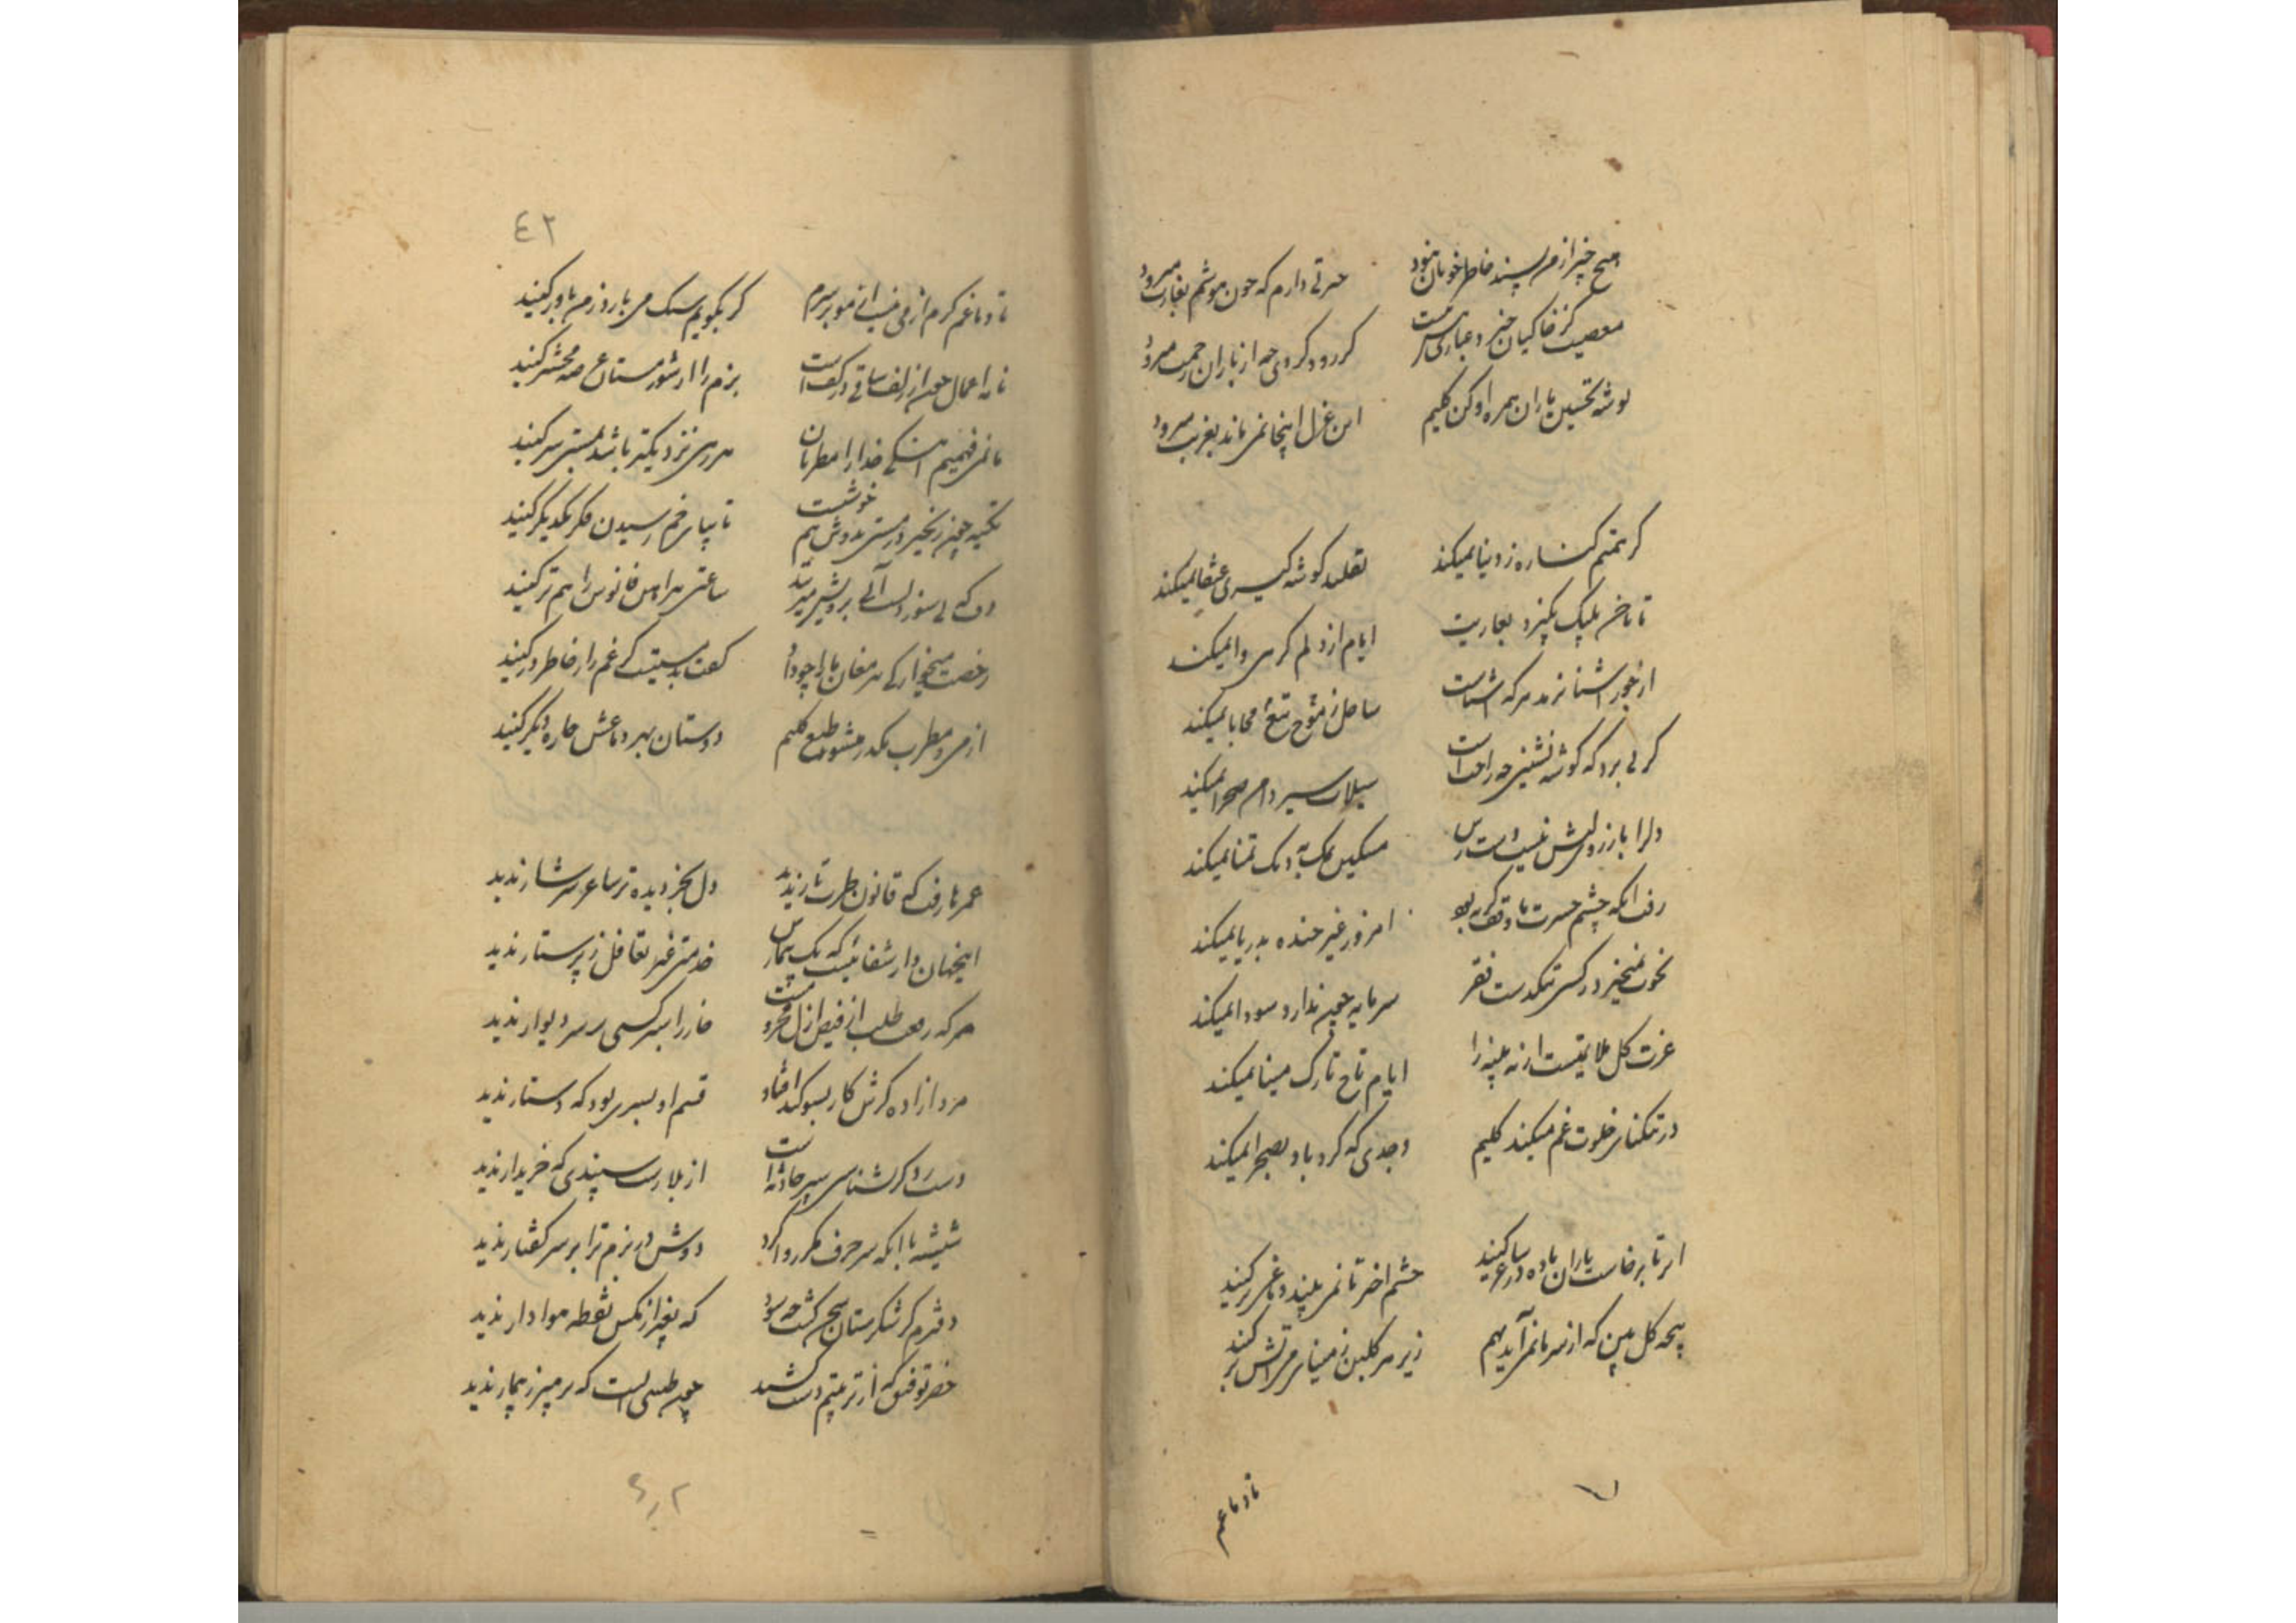 هیچ چیز از من پسند خاطر خوبان نبود حسرتی دارم که چون هوشم بغارت میرود
معصیت کز خاکیان خیزد غبار هستی است گر رود گردی چه از باران رحمت میرود
توشه تحسین یاران همره او کن کلیم این غزل اینجا نمی ماند بغربت میرود
گر همتم کناره ز دنیا نمیکند تقلید گوشه گیری عنقا نمیکند
تا ناخن پلنگ نگیرد بعاریت ایام از دلم گرهی وا نمیکند
از جور آشنا نرمد هر که آشناست ساحل ز موج تیغ محابا نمیکند
گر پی برد که گوشه نشینی چه راحت است سیلاب سیر دامن صحرا نمیکند
دلرا بآرزو رسش نیست دسترس مسکین نمک به دیگ تمنا نمیکند
رفت آنکه چشم حسرت ما وقف گریه بود امروز غیر خنده بدریا نمیکند
نخوت نمیخرد کس تنگدست فقر سرمایه چون ندارد سودا نمیکند
عزت گل ملایمتست ار نه پنبه را ایام تاج تارک مینا نمیکند
در تنگنای خلوت غم میکند کلیم وجدی که گردباد بصحرا نمیکند
ابر تا برخاست یاران باده در ساغر کنید چشم اختر تا نمی بیند دماغی تر کنید
پنجه گل بین که از سرما نمی آید بهم زیر هر گلبن ز مینای می آتش بر کنید
تا دماغم
٤٢
تا دماغم گرم از می نیست از مو بر سرم گر بگویم سنگ می بارد ز من باور کنید
نامه اعمال چون از زلف ساقی در کف است بزم را از شور مستان عرصه محشر کنید
ما نمی فهمیم آهنگی خدا را مطربان هر رهی نزدیکتر باشد بمستی سر کنید
تکیه چون زنجیر در مستی بدوش هم خوشست تا بپای خم رسیدن فکر یکدیگر کنید
ساعتی پیراهن فانوس را هم تر کنید
رخصت میخوارگی پیر مغان ما را چو داد گفت بد مستیست گر غم را ز خاطر در کنید
از می و مطرب مکدر میشود طبع کلیم دوستان بهر دماغش چاره دیگر کنید
عمر ما رفت که قانون طرب تار ندید دل بجز دیده تر ساغر سرشار ندید
اینجهان دار شفائیست که یک بیمارش خدمتی غیر تغافل ز پرستار ندید
هر که رفعت طلب از فیض ازل محروم است خار را سبز کسی بر سر دیوار ندید
مرد آزاده گرش کار بسوگند افتاد قسم او بسری بود که دستار ندید
از بلا رست سپندی که خریدار ندید
شیشه با آنکه سر حرف مکرر وا کرد دوش در بزم ترا بر سر گفتار ندید
دفترم گر شکرستان سخن گشت چه سود که بغیر از مگس نقطه هوادار ندید
خضر توفیق که از تربیتم دست کشید چون طبیبی است که پرهیز ز بیمار ندید